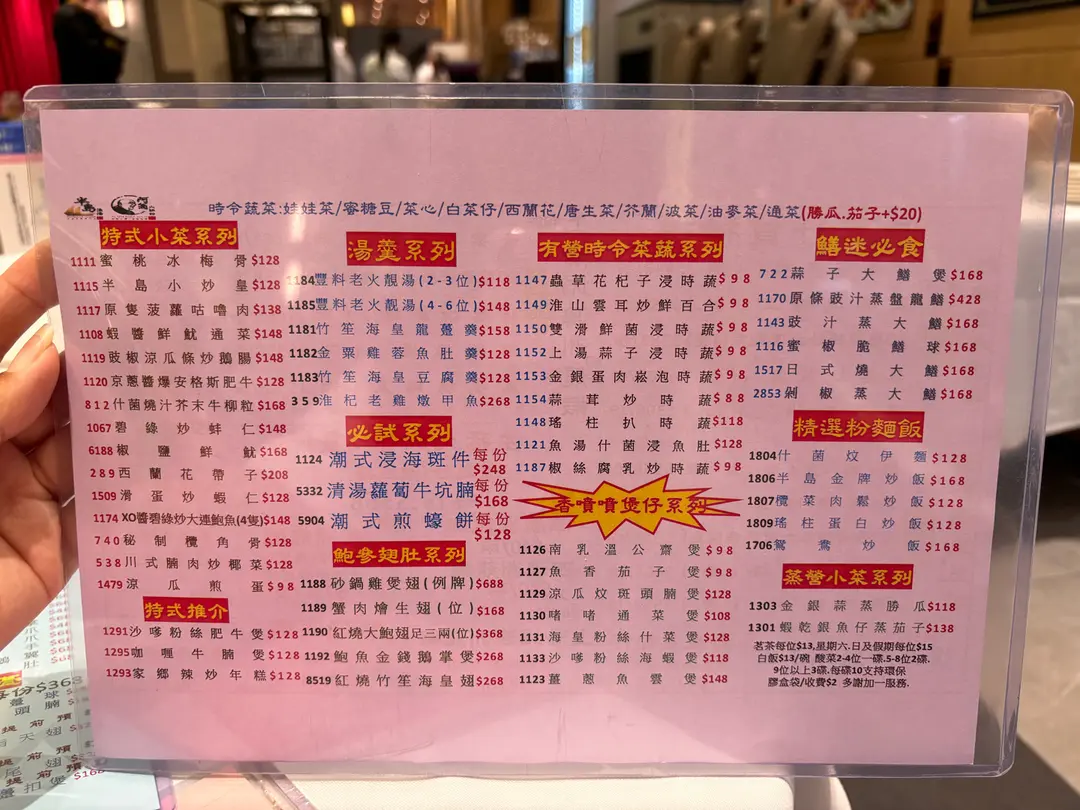 半島
時令蔬菜:娃娃菜/蜜糖豆/菜心/白菜仔/西蘭花/唐生菜/芥蘭/波菜/油麥菜/通菜(勝瓜.茄子+$20)
特式小菜系列
1111 蜜桃冰梅骨 $128
1115 半島小炒皇 $128
1117 原隻菠蘿咕嚕肉 $138
1108 蝦醬鮮魷通菜 $148
1119 豉椒涼瓜條炒鵝腸 $148
1120 京蔥醬爆安格斯肥牛 $128
812 什菌燒汁芥末牛柳粒 $168
1067 碧綠炒蚌仁 $148
6188 椒鹽鮮魷 $168
289 西蘭花帶子 $208
1509 滑蛋炒蝦仁 $128
1174 XO醬碧綠炒大連鮑魚(4隻) $148
740 秘制欖角骨 $128
538 川式腩肉炒椰菜 $128
1479 涼瓜煎蛋 $98
特式推介
1291 沙嗲粉絲肥牛煲 $128
1295 咖喱牛腩煲 $128
1293 家鄉辣炒年糕 $128
湯羹系列
1184 豐料老火靚湯(2-3位) $118
1185 豐料老火靚湯(4-6位) $148
1181 竹笙海皇龍躉羹 $158
1182 金粟雞蓉魚肚羹 $128
1183 竹笙海皇豆腐羹 $128
359 淮杞老雞燉甲魚 $268
必試系列
1124 潮式浸海斑件 每份 $248
5332 清湯蘿蔔牛坑腩 每份 $168
5904 潮式煎蠔餅 每份 $128
鮑參翅肚系列
1188 砂鍋雞煲翅(例牌) $688
1189 蟹肉燴生翅(位) $168
1190 紅燒大鮑翅足三兩(位) $368
1192 鮑魚金錢鵝掌煲 $268
8519 紅燒竹笙海皇翅 $268
有營時令菜蔬系列
1147 蟲草花杞子浸時蔬 $98
1149 淮山雲耳炒鮮百合 $98
1150 雙滑鮮菌浸時蔬 $98
1152 上湯蒜子浸時蔬 $98
1153 金銀蛋肉崧泡時蔬 $98
1154 蒜茸炒時蔬 $88
1148 瑤柱扒時蔬 $118
1121 魚湯什菌浸魚肚 $128
1187 椒絲腐乳炒時蔬 $98
香噴噴煲仔系列
1126 南乳溫公齋煲 $98
1127 魚香茄子煲 $98
1129 涼瓜炆斑頭腩煲 $128
1130 啫啫通菜煲 $108
1131 海皇粉絲什菜煲 $128
1133 沙嗲粉絲海蝦煲 $118
1123 薑蔥魚雲煲 $148
鱔迷必食
722 蒜子大鱔煲 $168
1170 原條豉汁蒸盤龍鱔 $428
1143 豉汁蒸大鱔 $168
1116 蜜椒脆鱔球 $168
1517 日式燒大鱔 $168
2853 剁椒蒸大鱔 $168
精選粉麵飯
1804 什菌炆伊麵 $128
1806 半島金牌炒飯 $168
1807 欖菜肉鬆炒飯 $128
1809 瑤柱蛋白炒飯 $128
1706 鴛鴦炒飯 $168
蒸營小菜系列
1303 金銀蒜蒸勝瓜 $118
1301 蝦乾銀魚仔蒸茄子 $138
茗茶每位$13,星期六.日及假期每位$15
白飯$13/碗 酸菜2-4位一碟.5-8位2碟.
9位以上3碟.每碟10支持環保
膠盒袋/收費$2 多謝加一服務.